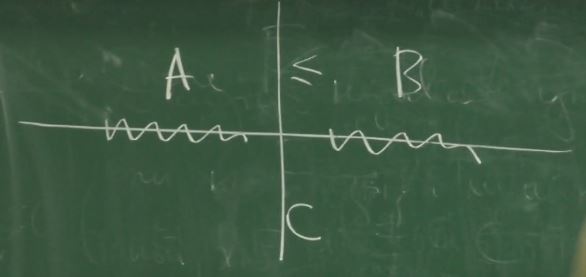 A ≤ B
C